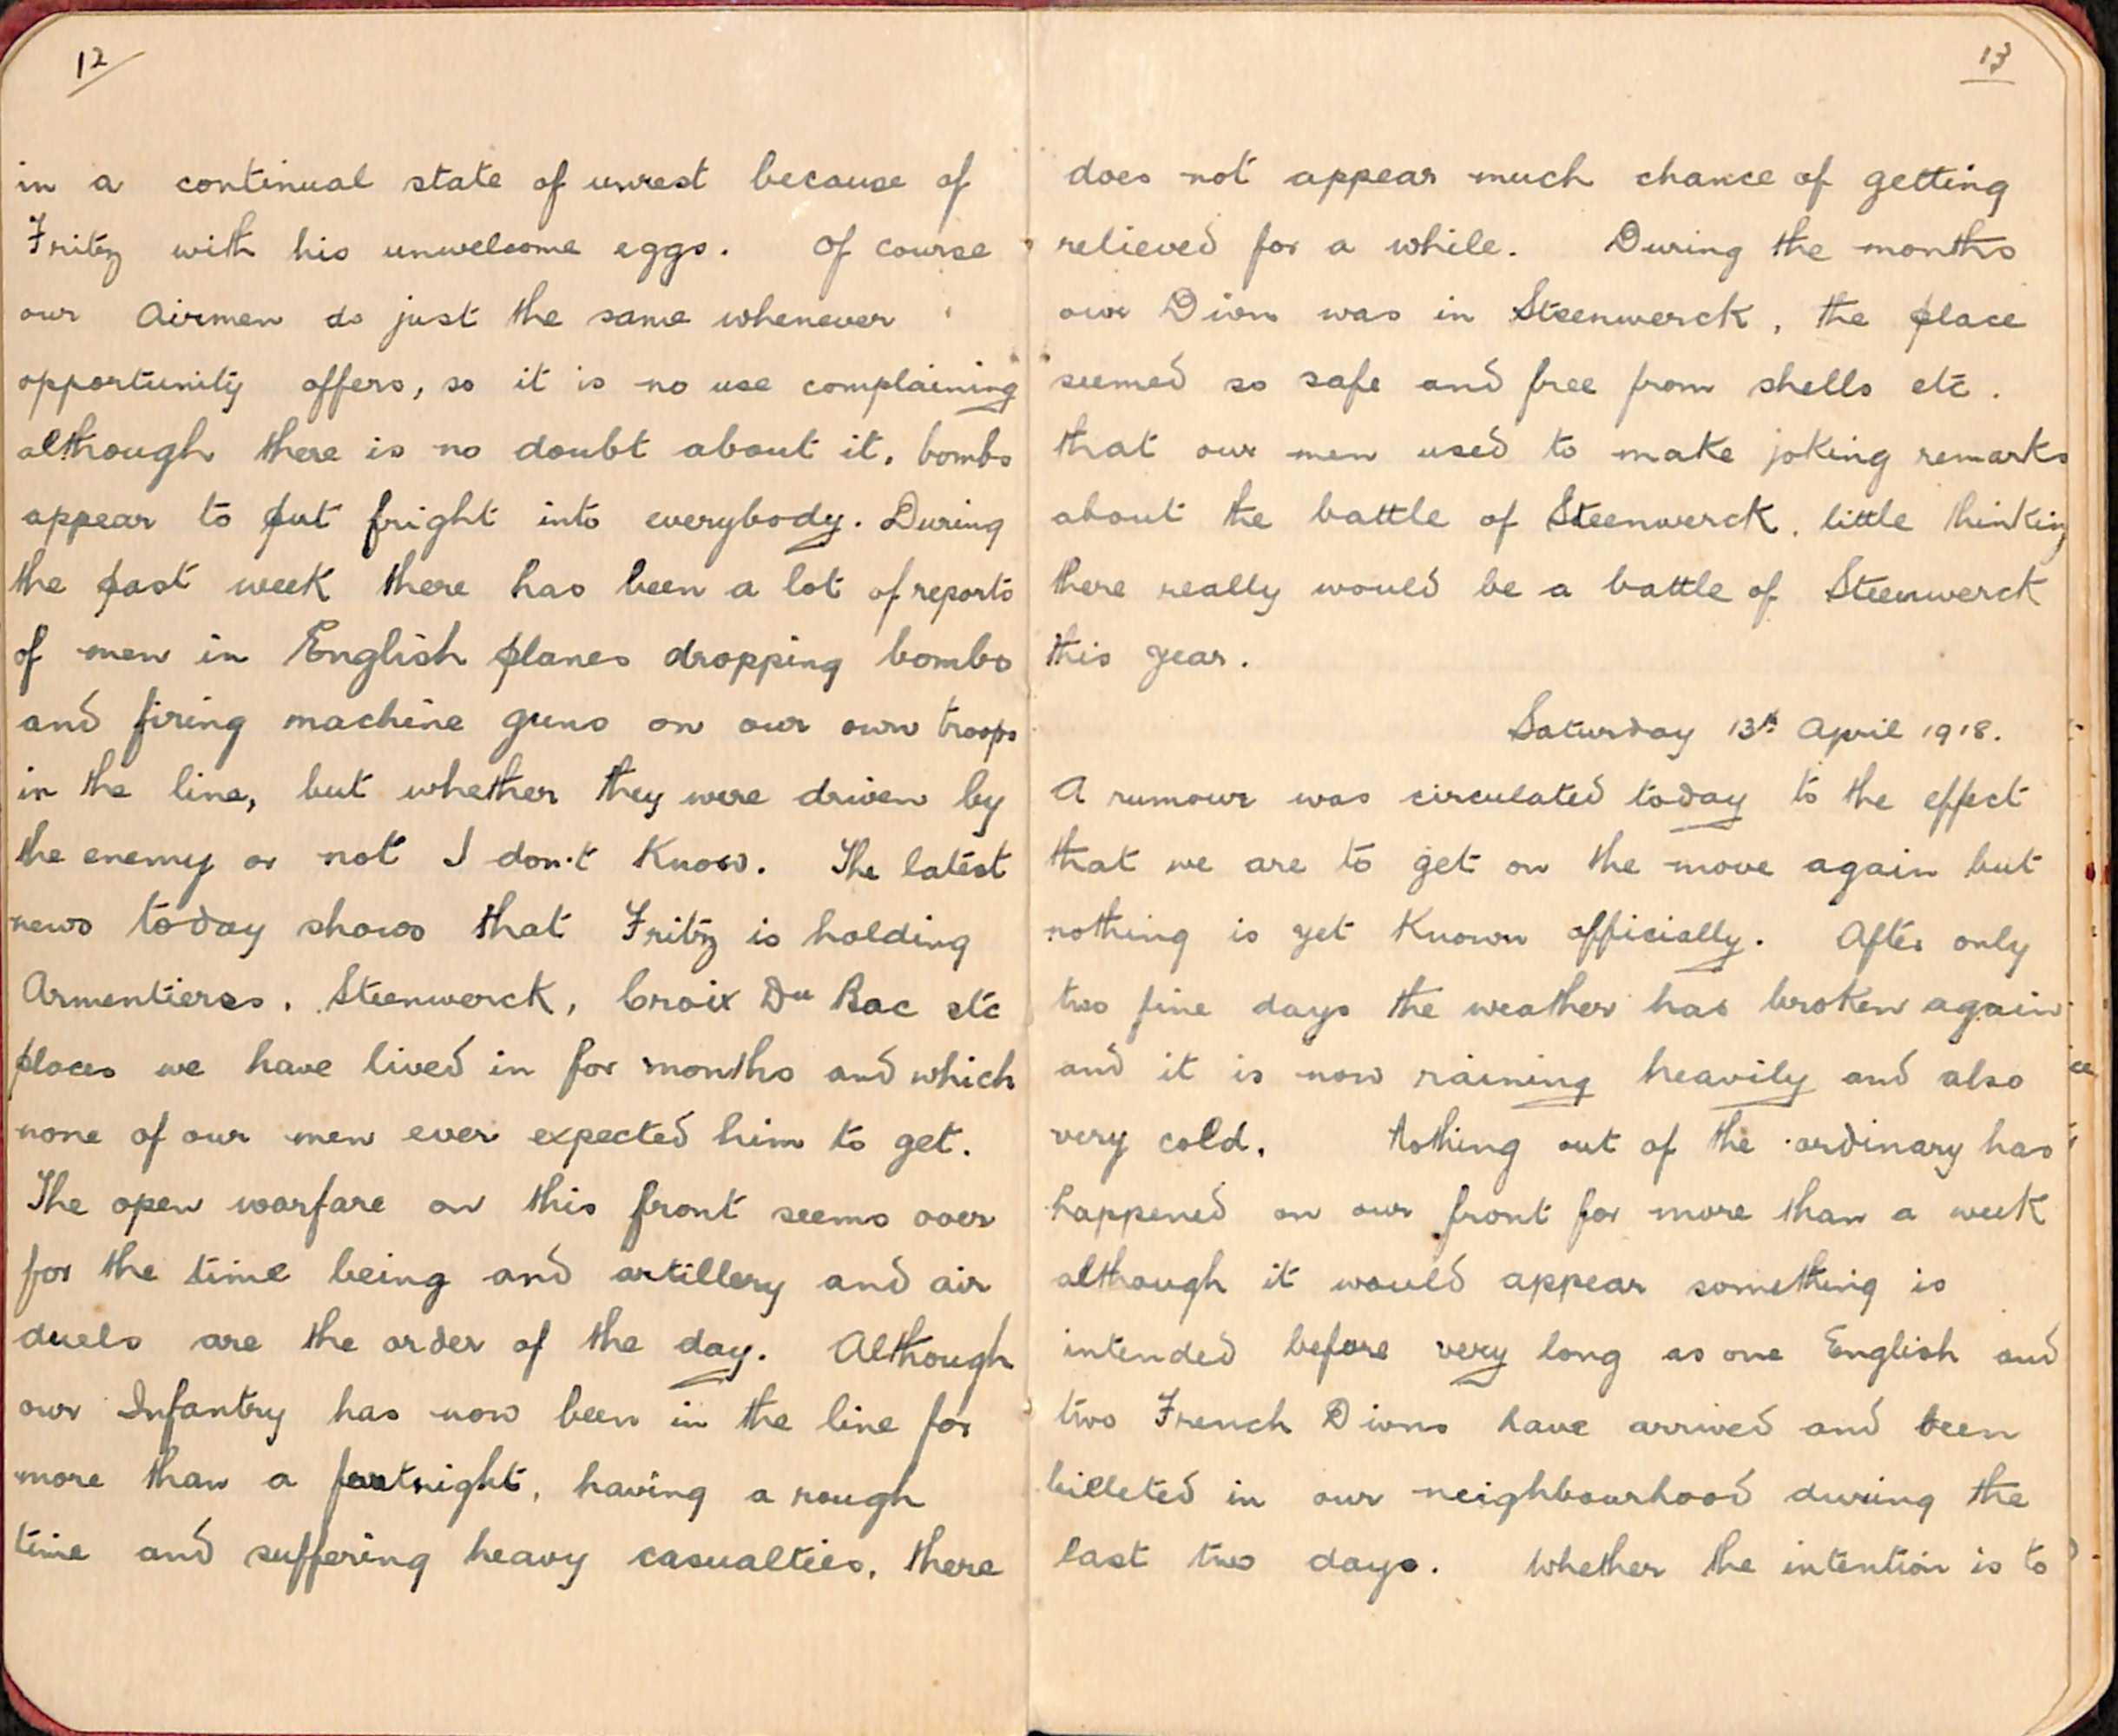 12
in a continual state of unrest because of
Fritz with his unwelcome eggs. Of course
our Airmen do just the same whenever
opportunity offers, so it is no use complaining
although there is no doubt about it, bombs
appear to put fright into everybody. During
the past week there has been a lot of reports
of men in English planes dropping bombs
and firing machine guns on our own troops
in the line, but whether they were driven by
the enemy or not I don't know. The latest
news today shows that Fritz is holding
Armentieres, Steenwerck, Croix Du Bac etc
places we have lived in for months and which
none of our men ever expected him to get.
The open warfare on this front seems over
for the time being and artillery and air
duels are the order of the day. Although
our Infantry has now been in the line for
more than a fortnight, having a rough
time and suffering heavy casualties, there
13
does not appear much chance of getting
relieved for a while. During the months
our Divn was in Steenwerck, the place
seemed so safe and free from shells etc.
that our men used to make joking remarks
about the battle of Steenwerck, little thinking
there really would be a battle of Steenwerck
this year.
Saturday 13th April 1918.
A rumour was circulated today to the effect
that we are to get on the move again but
nothing is yet known officially. After only
two fine days the weather has broken again
and it is now raining heavily and also
very cold. Nothing out of the ordinary has
happened on our front for more than a week
although it would appear something is
intended before very long as one English and
two French Divns have arrived and been
billeted in our neighbourhood during the
last two days. Whether the intention is to